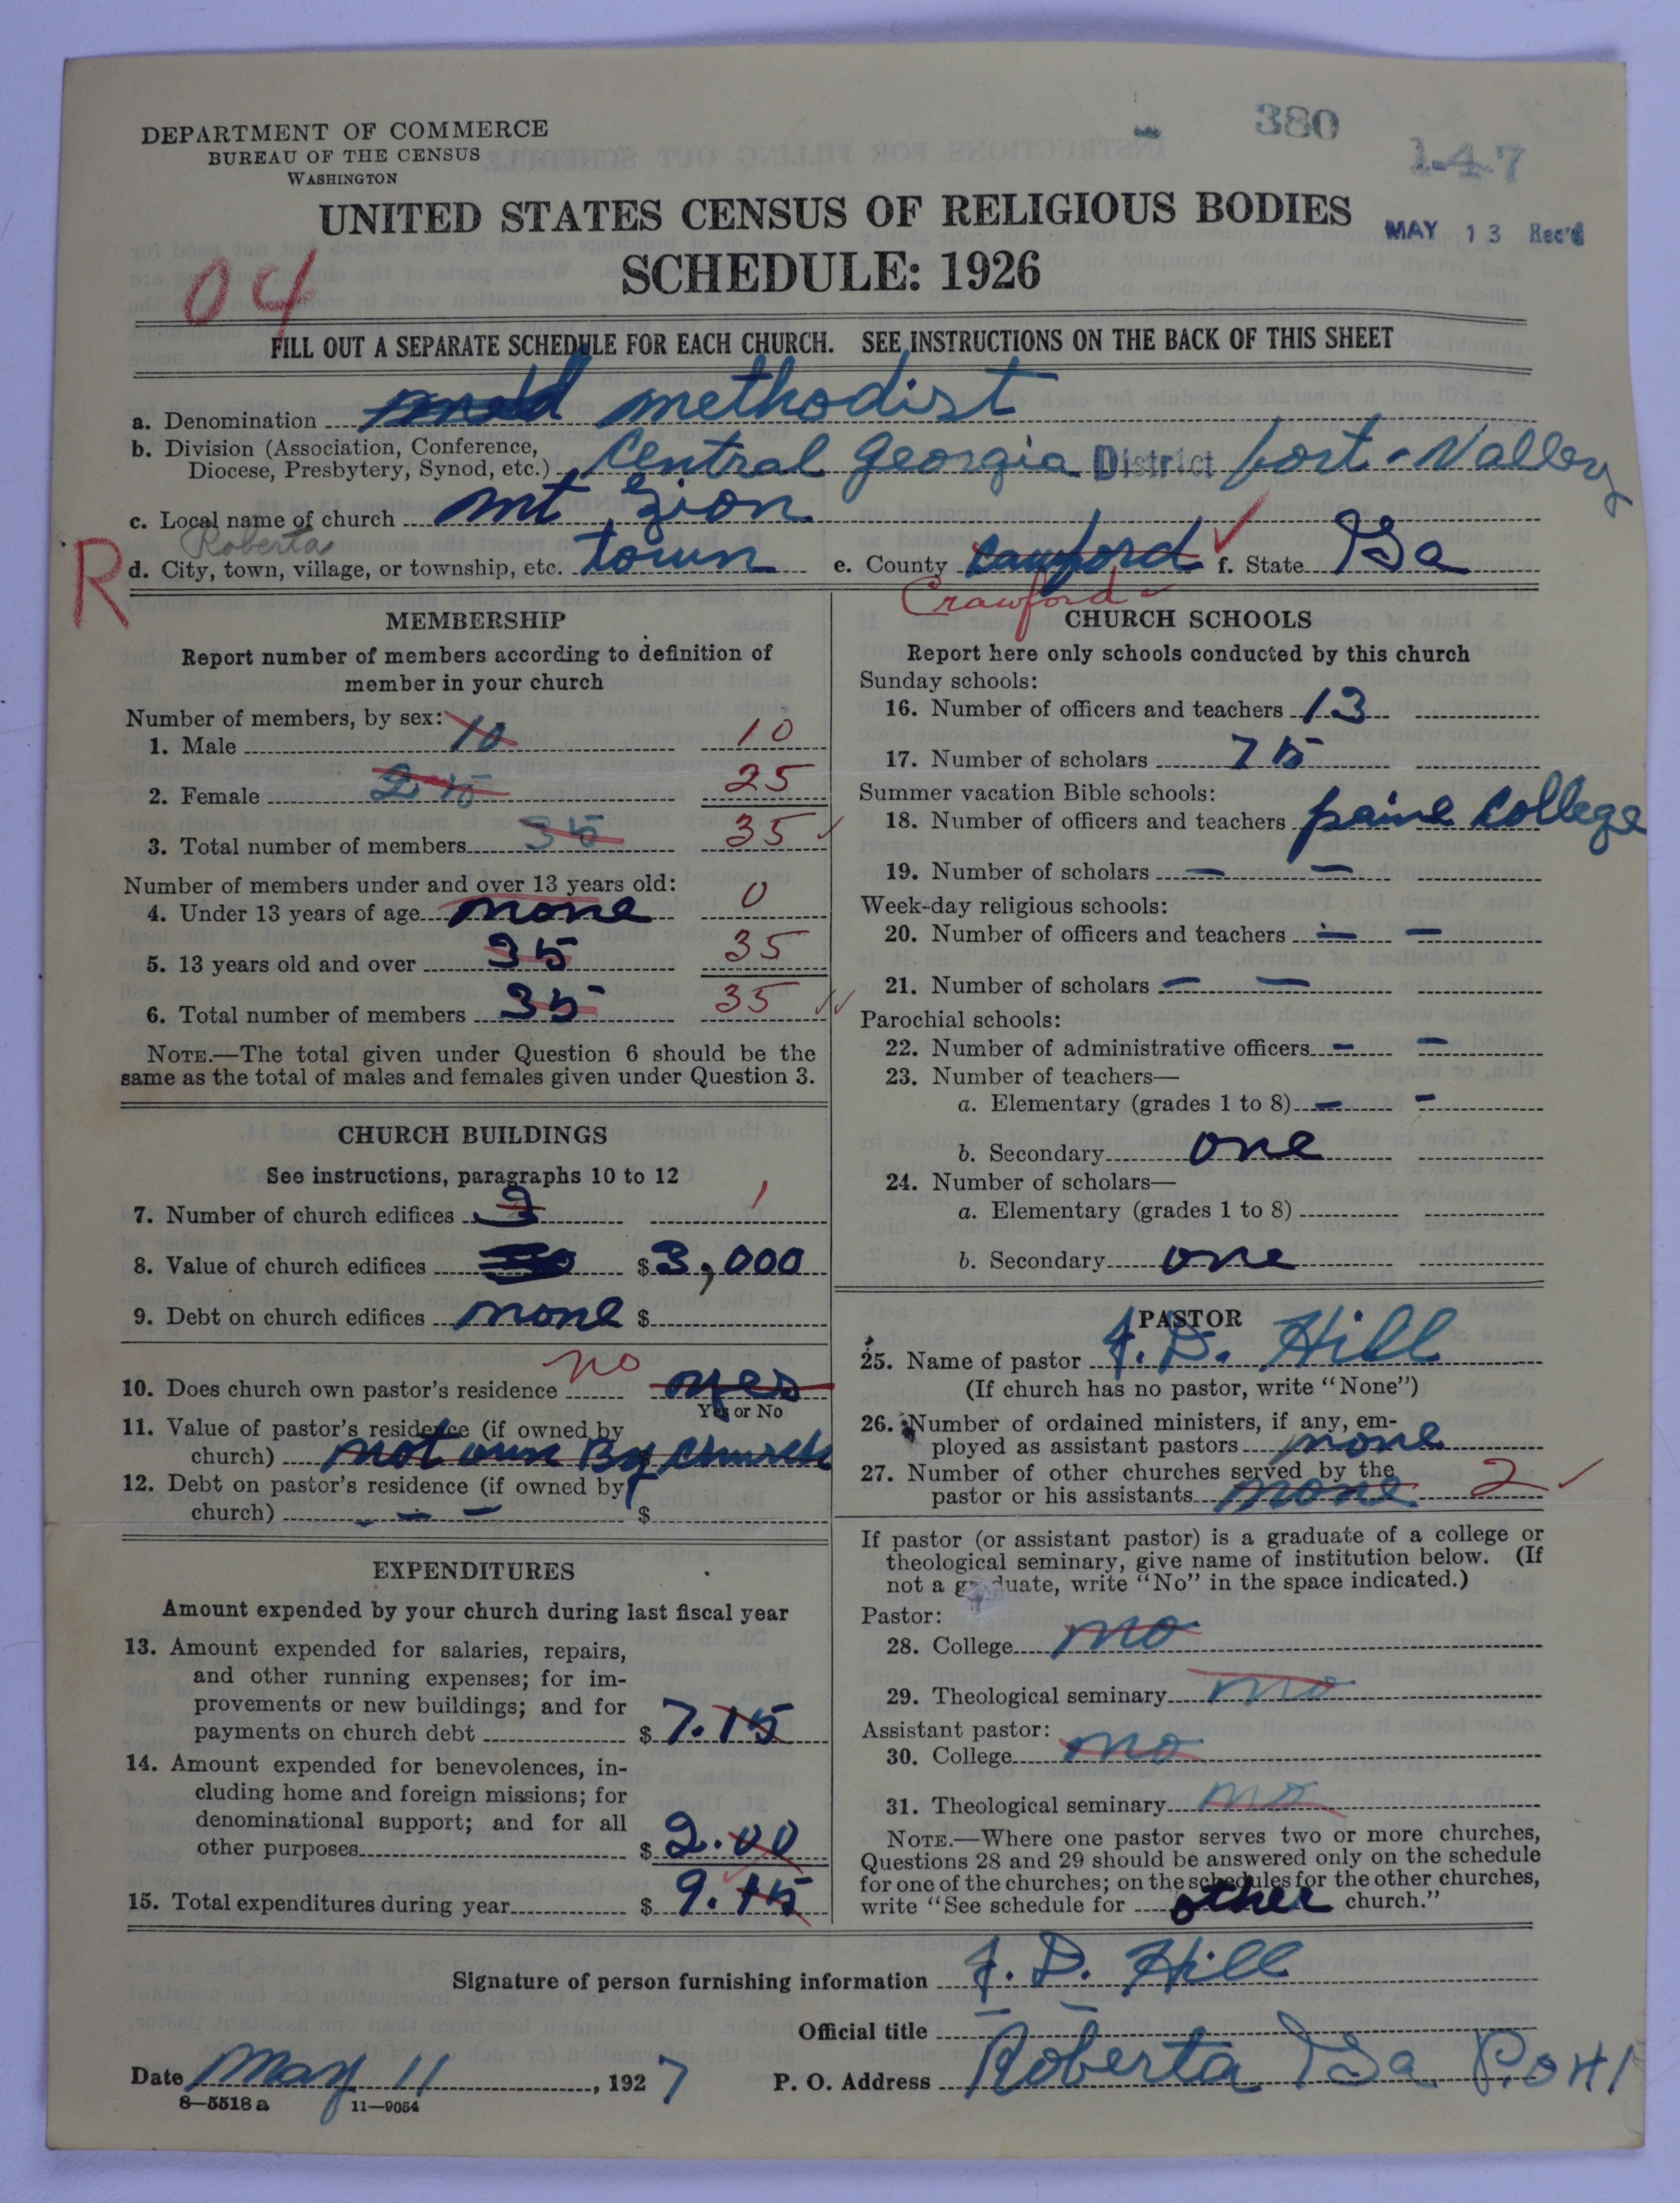 380
1-47
DEPARTMENT OF COMMERCE
BUREAU OF THE CENSUS
WASHINGTON
UNITED STATES CENSUS OF RELIGIOUS BODIES
MAY 13 Rec'd
SCHEDULE: 1926
04
FILL OUT A SEPARATE SCHEDULE FOR EACH CHURCH. SEE INSTRUCTIONS ON THE BACK OF THIS SHEET
a. Denomination methodist
b. Division (Association, Conference,
Diocese, Presbytery, Synod, etc.) Central Georgia District fort-Valley
c. Local name of church mt Zion
Roberta
R
d. City, town, village, or township, etc. town e. County Cawford f. State Ga
Crawford
MEMBERSHIP
Report number of members according to definition of
member in your church
Number of members, by sex:
1. Male 10 10
2. Female 25 25
3. Total number of members 35 35
Number of members under and over 13 years old:
4. Under 13 years of age none 0
5. 13 years old and over 35 35
6. Total number of members 35 35
NOTE.—The total given under Question 6 should be the
same as the total of males and females given under Question 3.
CHURCH BUILDINGS
See instructions, paragraphs 10 to 12
7. Number of church edifices 1
8. Value of church edifices $3,000
9. Debt on church edifices none $
10. Does church own pastor's residence no yes
Yes or No
11. Value of pastor's residence (if owned by
church) not own By church
12. Debt on pastor's residence (if owned by
church) - - - $
EXPENDITURES
Amount expended by your church during last fiscal year
13. Amount expended for salaries, repairs,
and other running expenses; for im-
provements or new buildings; and for
payments on church debt $ 7.15
14. Amount expended for benevolences, in-
cluding home and foreign missions; for
denominational support; and for all
other purposes $ 2.00
15. Total expenditures during year $ 9.15
CHURCH SCHOOLS
Report here only schools conducted by this church
Sunday schools:
16. Number of officers and teachers 13
17. Number of scholars 75
Summer vacation Bible schools:
18. Number of officers and teachers paine College
19. Number of scholars — —
Week-day religious schools:
20. Number of officers and teachers — —
21. Number of scholars — —
Parochial schools:
22. Number of administrative officers — —
23. Number of teachers—
a. Elementary (grades 1 to 8) — -
b. Secondary one
24. Number of scholars—
a. Elementary (grades 1 to 8)
b. Secondary one
PASTOR
25. Name of pastor J. D. Hill
(If church has no pastor, write "None")
26. Number of ordained ministers, if any, em-
ployed as assistant pastors none
27. Number of other churches served by the
pastor or his assistants none 2
If pastor (or assistant pastor) is a graduate of a college or
theological seminary, give name of institution below. (If
not a graduate, write "No" in the space indicated.)
Pastor:
28. College no
29. Theological seminary no
Assistant pastor:
30. College no
31. Theological seminary no
NOTE.—Where one pastor serves two or more churches,
Questions 28 and 29 should be answered only on the schedule
for one of the churches; on the schedules for the other churches,
write "See schedule for other church."
Signature of person furnishing information J. D. Hill
Official title
Date May 11, 1927 P. O. Address Roberta Ga
8—5518 a 11—9054